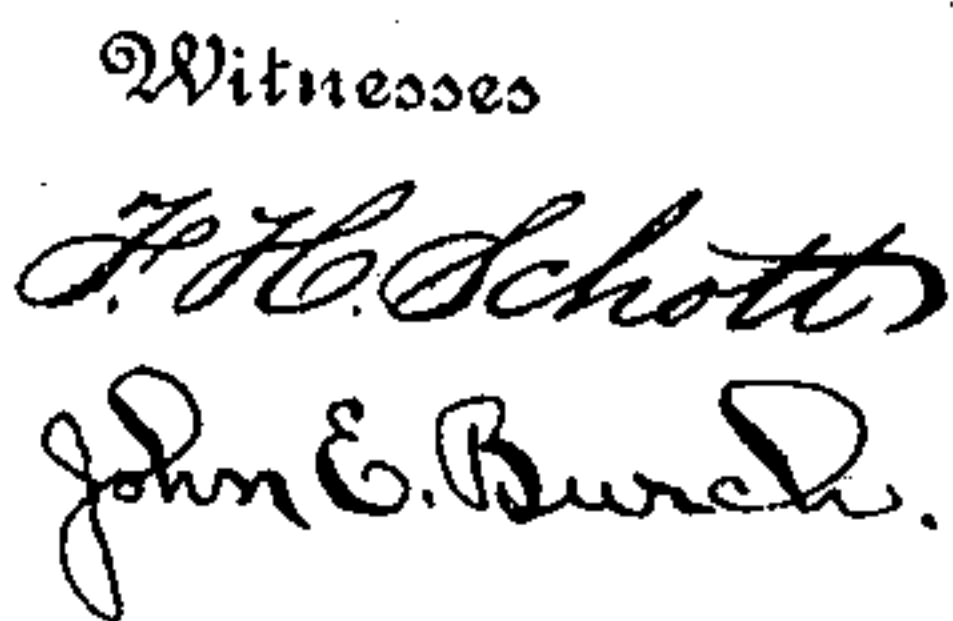 Witnesses
F. H. Schott
John E. Burch.